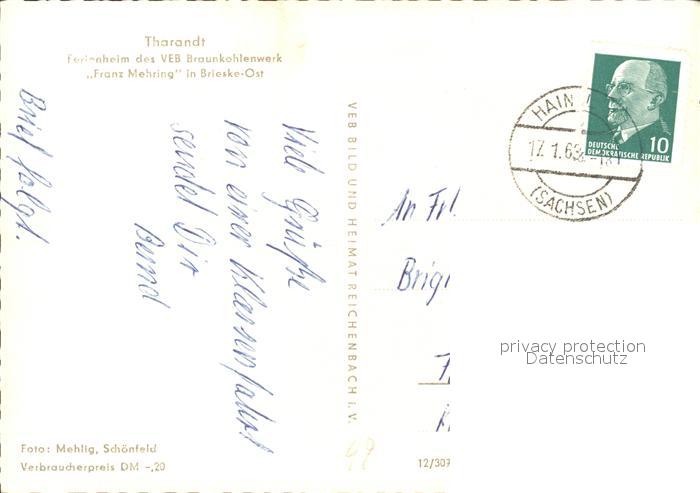 Tharandt
Ferienheim des VEB Braunkohlenwerk
„Franz Mehring" in Brieske-Ost
Viele Grüße
von einer Klassenfahrt
sendet Dir
Bernd
Brief folgt.
VEB BILD UND HEIMAT REICHENBACH i. V.
HAIN
17. 1. 63
(SACHSEN)
DEUTSCHE
DEMOKRATISCHE REPUBLIK
10
An Frl.
Brigi
privacy protection
Datenschutz
Foto: Mehlig, Schönfeld
Verbraucherpreis DM -,20
49
12/307